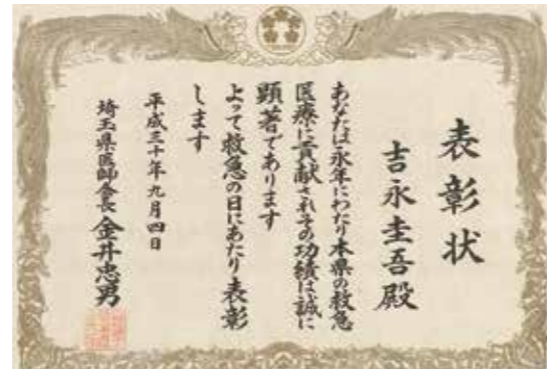 表彰状
吉永圭吾殿
あなたは永年にわたり本県の救急
医療に貢献されその功績は誠に
顕著であります
よって救急の日にあたり表彰
します
平成三十年九月四日
埼玉県医師会長 金井忠男